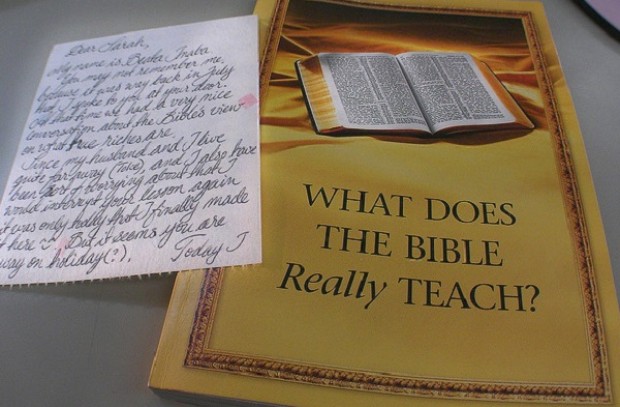 Dear Sarah,
My name is Beaba Inaba.
You may not remember me,
because it was way back in July
that I spoke to you at your door.
At that time we had a very nice
conversation about the Bible's view
on what true riches are.
Since my husband and I live
quite far away (Toke), and I also have
been sort of worrying about that I
would interrupt your lesson again
it was only today that I finally made
it here. But, it seems you are
away on holiday(?). Today I
WHAT DOES
THE BIBLE
Really TEACH?